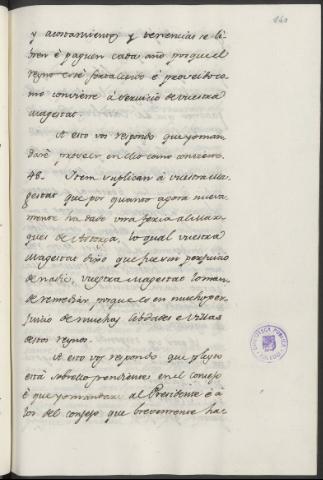 y acostamientos y tenencias se li-
bren é paguen cada año porque el
reyno esté fortalecido é proveido co-
mo conviene á servicio de vuestra
magestat.
A esto vos respondo que yo man-
daré proveer en ello como conviene.
48. Item suplican á vuestra Ma-
gestat que por quanto agora nueva-
mente ha dado una feria al Mar-
ques de Astorga, lo qual vuestra
Magestat dixo que fuese sin perjuicio
de nadie, vuestra Magestat lo man-
de remediar, porque es en mucho per-
juicio de muchas Cibdades é Villas
destos reynos.
A esto vos respondo que pleyto
está sobrello pendiente en el consejo
é que yo mandaré al Presidente é á
los del consejo que brevemente hay
BIBLIOTECA PUBLICA
TOLEDO